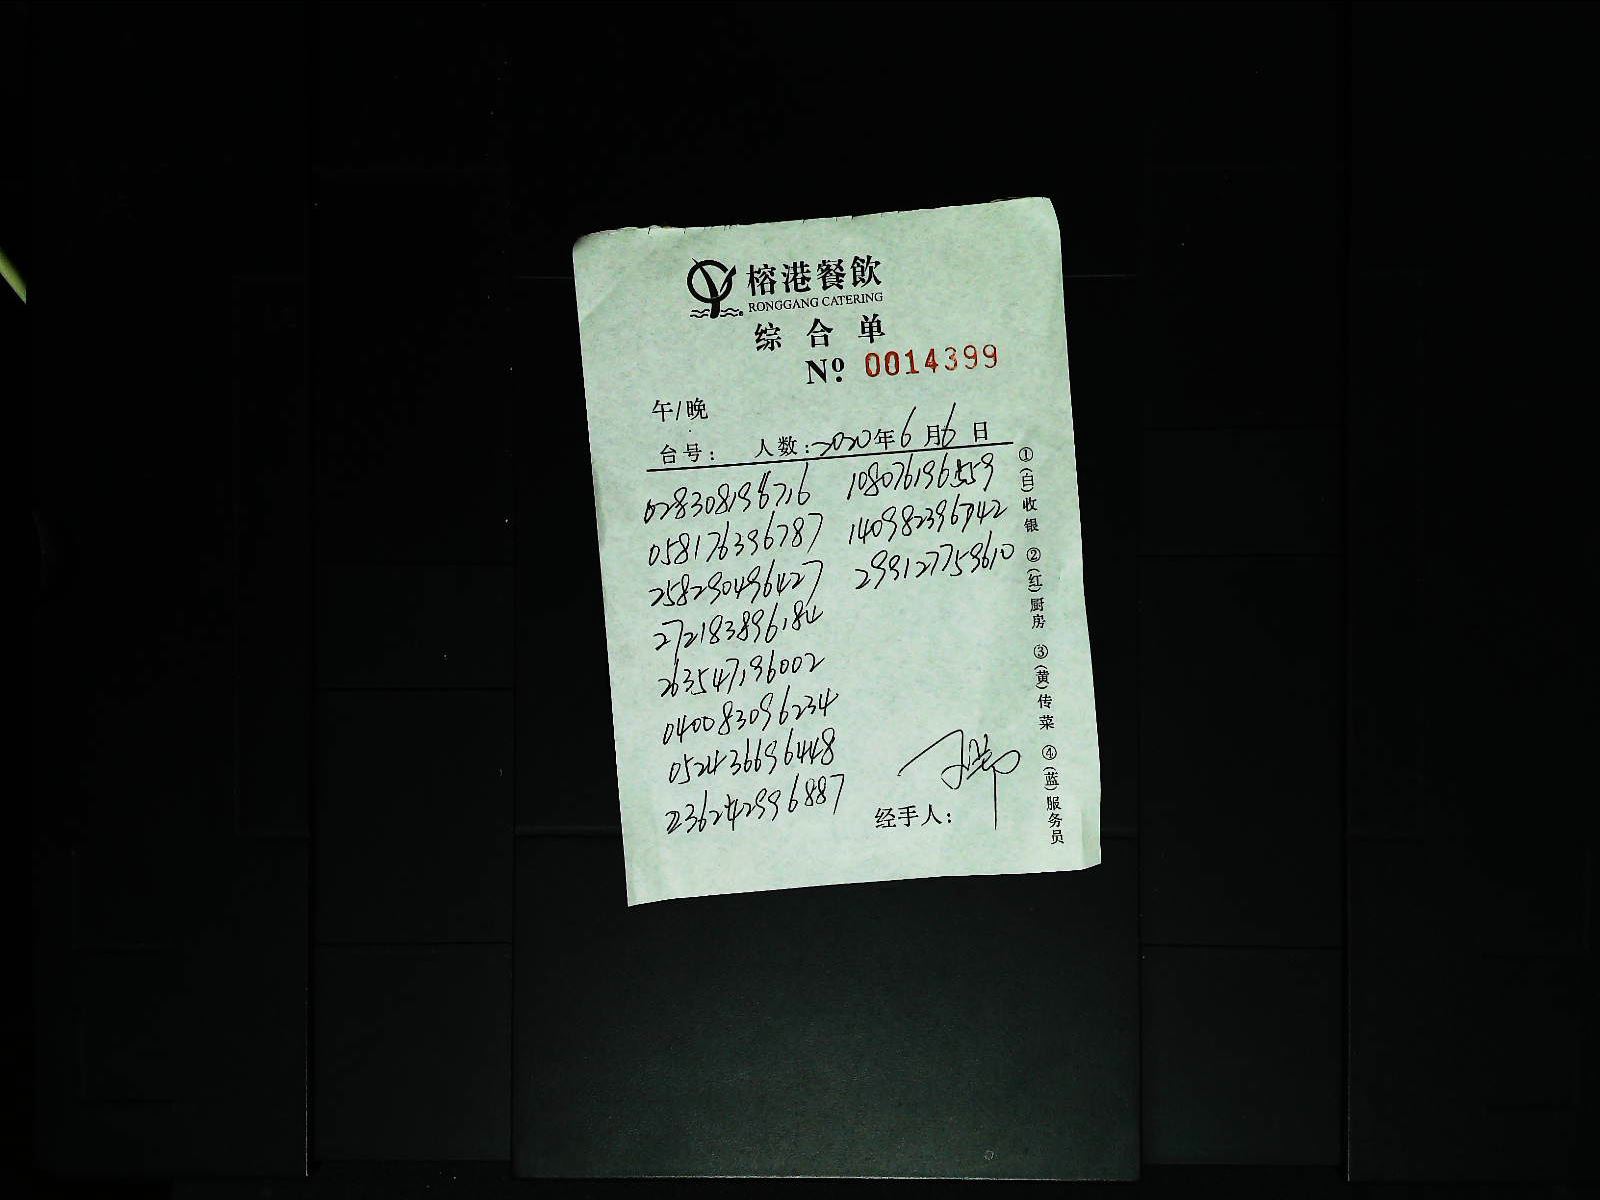 榕港餐飲
RONGGANG CATERING
综合单
Nº 0014399
午/晚
台号: 人数: 2020年6月6日
028308196716 108076196559
058176396787 140982396742
258290496427 299127759610
272183896184
263547196002
040083096234
052436696448
236242996887
经手人:
①(白)收银 ②(红)厨房 ③(黄)传菜 ④(蓝)服务员